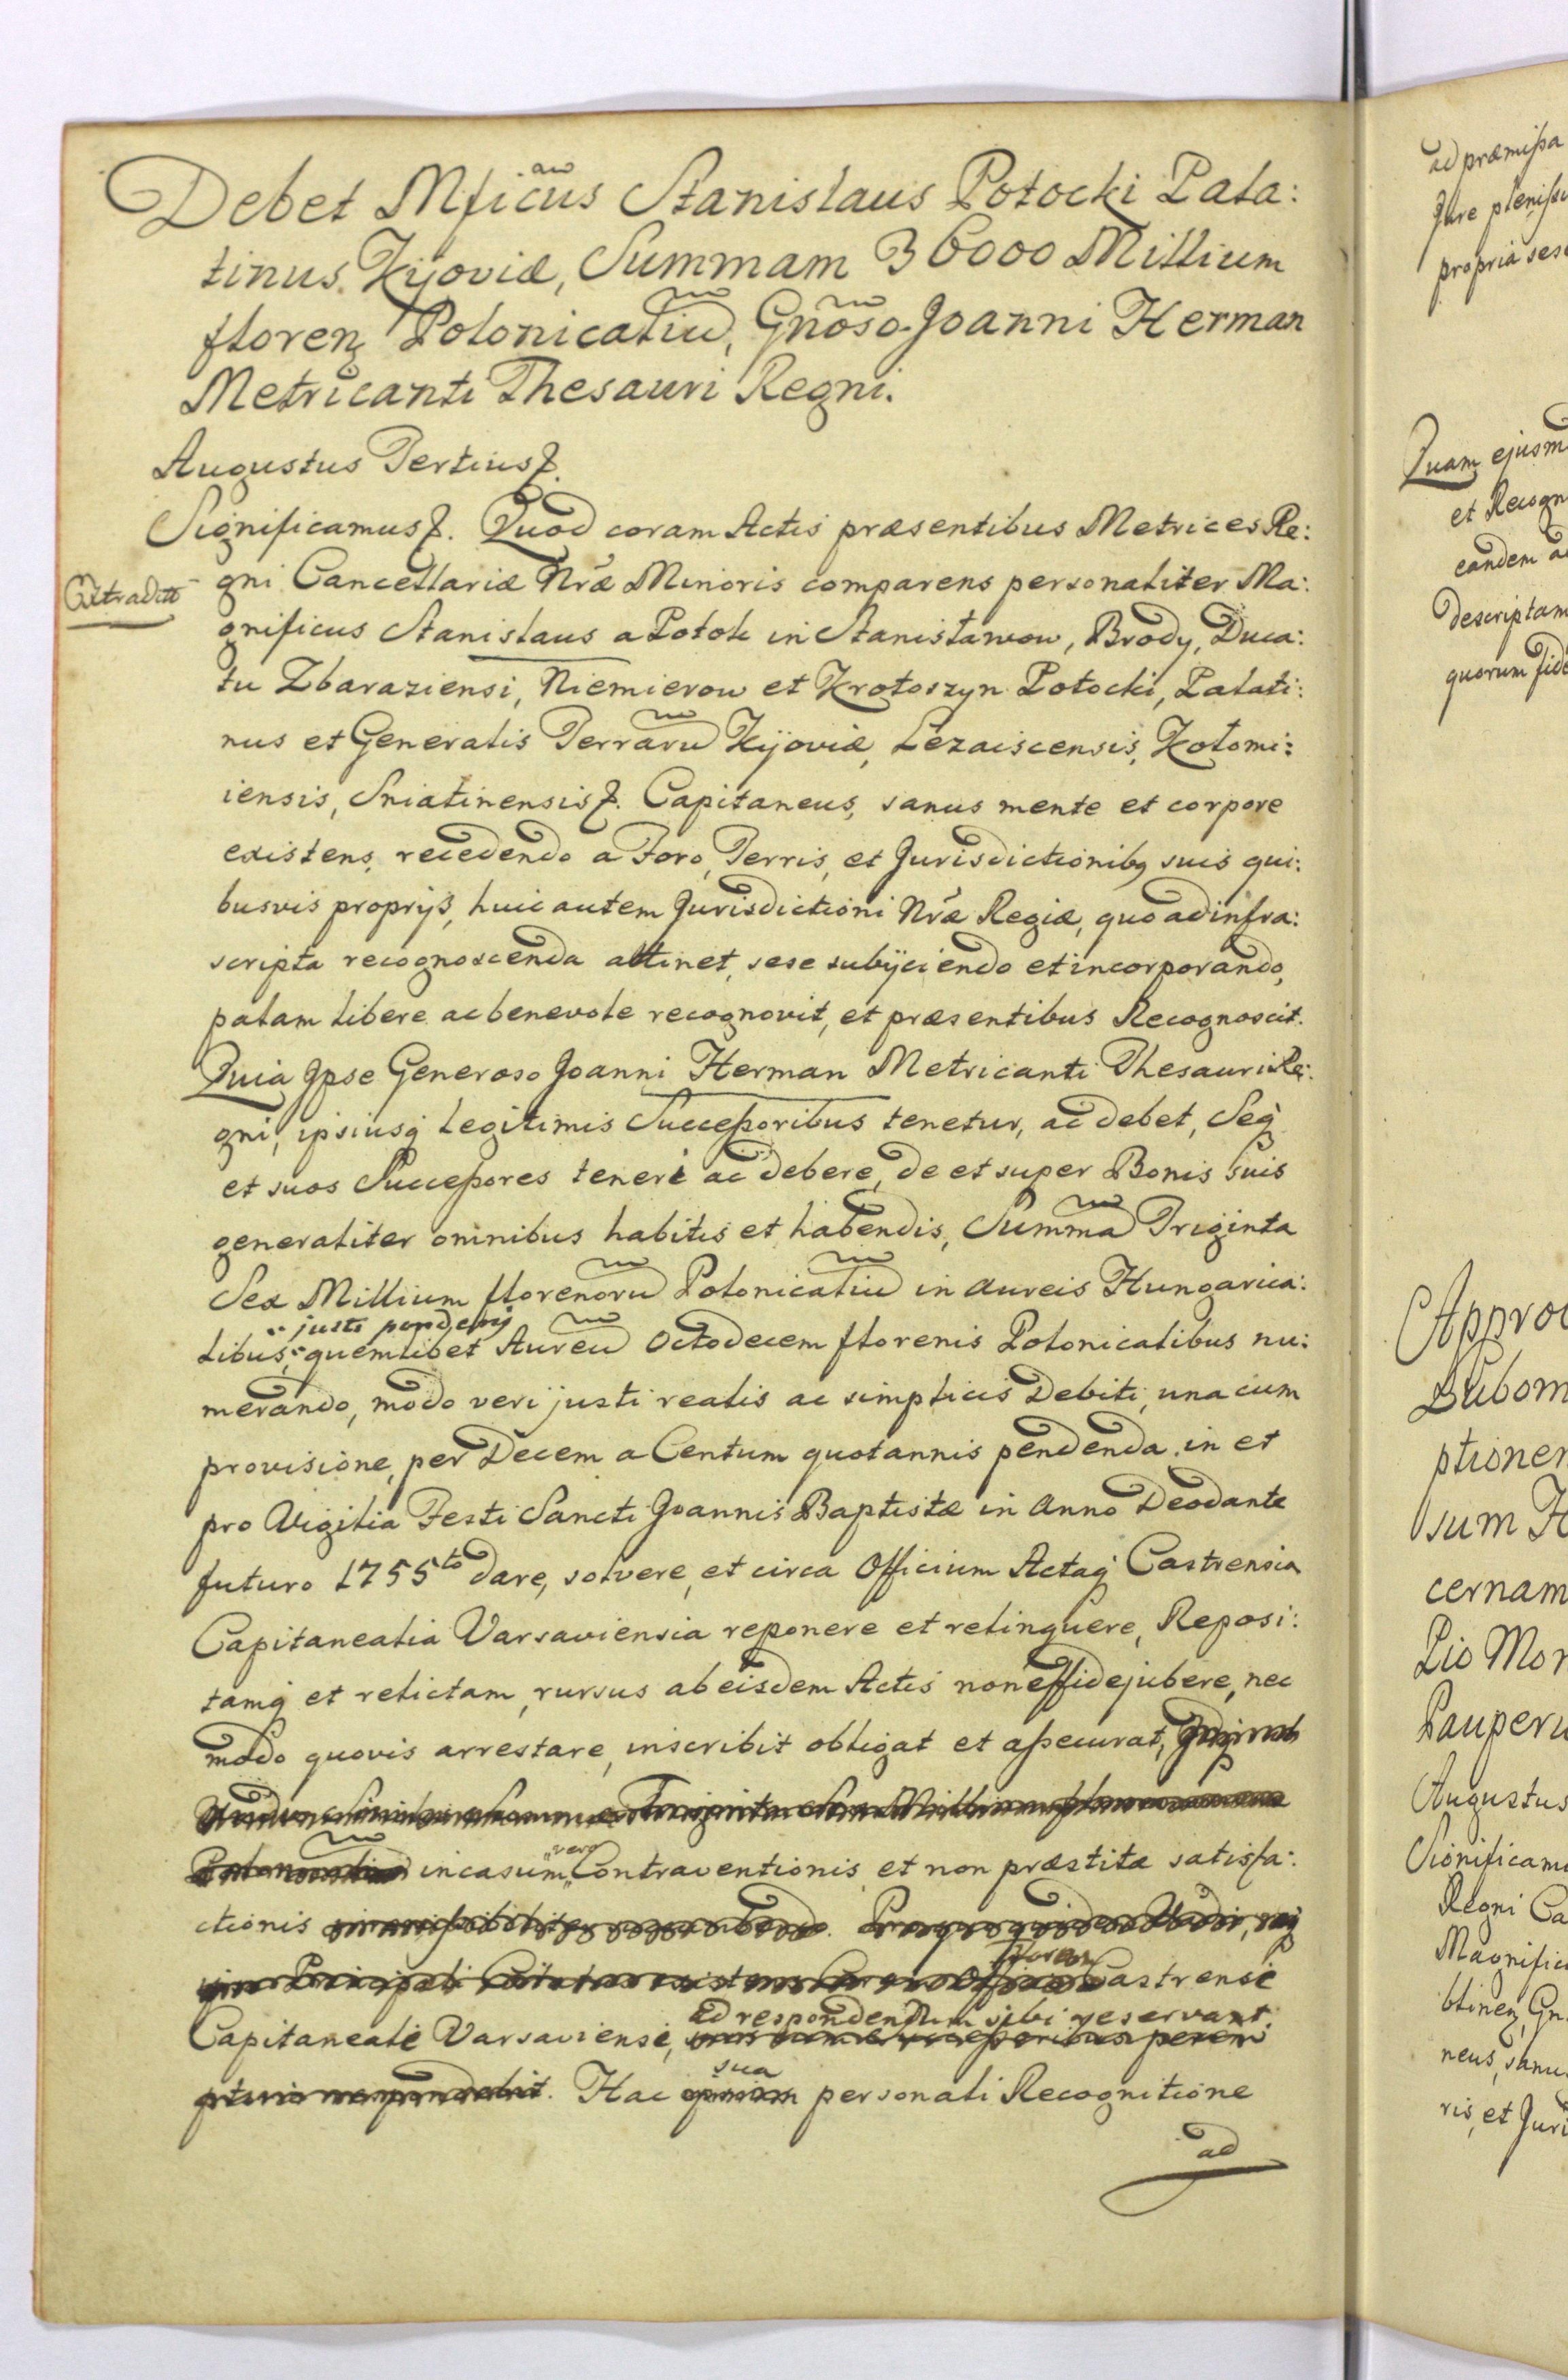 Debet Mficus Stanislaus Potocki Pala:
tinus Kijoviæ, Summam 36000 Millium
floren Polonicaliu, Gnoso Joanni Herman
Metricanti Thesauri Regni.
Augustus Tertius
Significamus. Quod coram Actis præsentibus Metrices Re:
Extradit
gni Cancellariæ Nræ Minoris comparens personaliter Ma:
gnificus Stanislaus a Potok in Stanisławow, Brody, Duca:
tu Zbaraziensi, Niemierow et Krotoszyn Potocki, Palati:
nus et Generalis Terraru Kijoviæ, Lezaiscensis, Kołomi:
iensis, Sniatinensis. Capitaneus, sanus mente et corpore
existens, recedendo a Foro, Terris, et Jurisdictionibq suis qui:
busvis proprijs, huic autem Jurisdictioni Nræ Regiæ, quo ad infra:
scripta recognoscenda attinet, sese subijciendo et incorporando,
palam libere ac benevole recognovit, et præsentibus Recognoscit.
Quia Ipse Generoso Joanni Herman Metricanti Thesauri Re:
gni, ipsiusq Legitimis Successoribus tenetur, ac debet, Seq
et suos Successores teneri ac debere, de et super Bonis suis
generaliter omnibus habitis et habendis, Summa Triginta
Sex Millium florenoru Polonicaliu in Aureis Hungarica:
justi ponderis
libus, quemlibet Aureu Octodecem florenis Polonicalibus nu:
merando, modo veri justi realis ac simplicis Debiti, una cum
provisione, per Decem a Centum quotannis pendenda, in et
pro Vigilia Festi Sancti Joannis Baptistæ in Anno Deodante
futuro 1755to dare, solvere, et circa Officium Actaq Castrensia
Capitanealia Varsaviensia reponere et relinquere, Reposi:
tamq et relictam, rursus ab eisdem Actis non effidejubere, nec
modo quovis arrestare, inscribit obligat et assecurat,
Triginta Sex Millium
vero
in casum Contraventionis et non præstitæ satisfa:
ctionis
Forum
Castrense
ad respondendum sibi reservant.
Capitaneale Varsaviense,
sua
Hac personali Recognitione
ad
ad præmissa
Jure plenissi
propria sese
Quam ejusm
et Recogn
eandem a
descriptam
quorum fide
Approb
Lubom
ptionem
sum H
cernam
Pio Mon
Pauperu
Augustus
Significam
Regni Ca
Magnific
blinen, Gn
neus, sanu
ris, et Juri